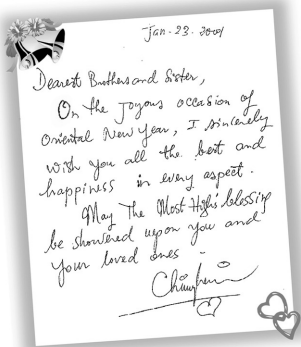 Jan-23.2004
Dearest Brothers and Sister,
On the Joyous occasion of
Oriental New Year, I sincerely
wish you all the best and
happiness in every aspect.
May The Most High's blessing
be showered upon you and
your loved ones.